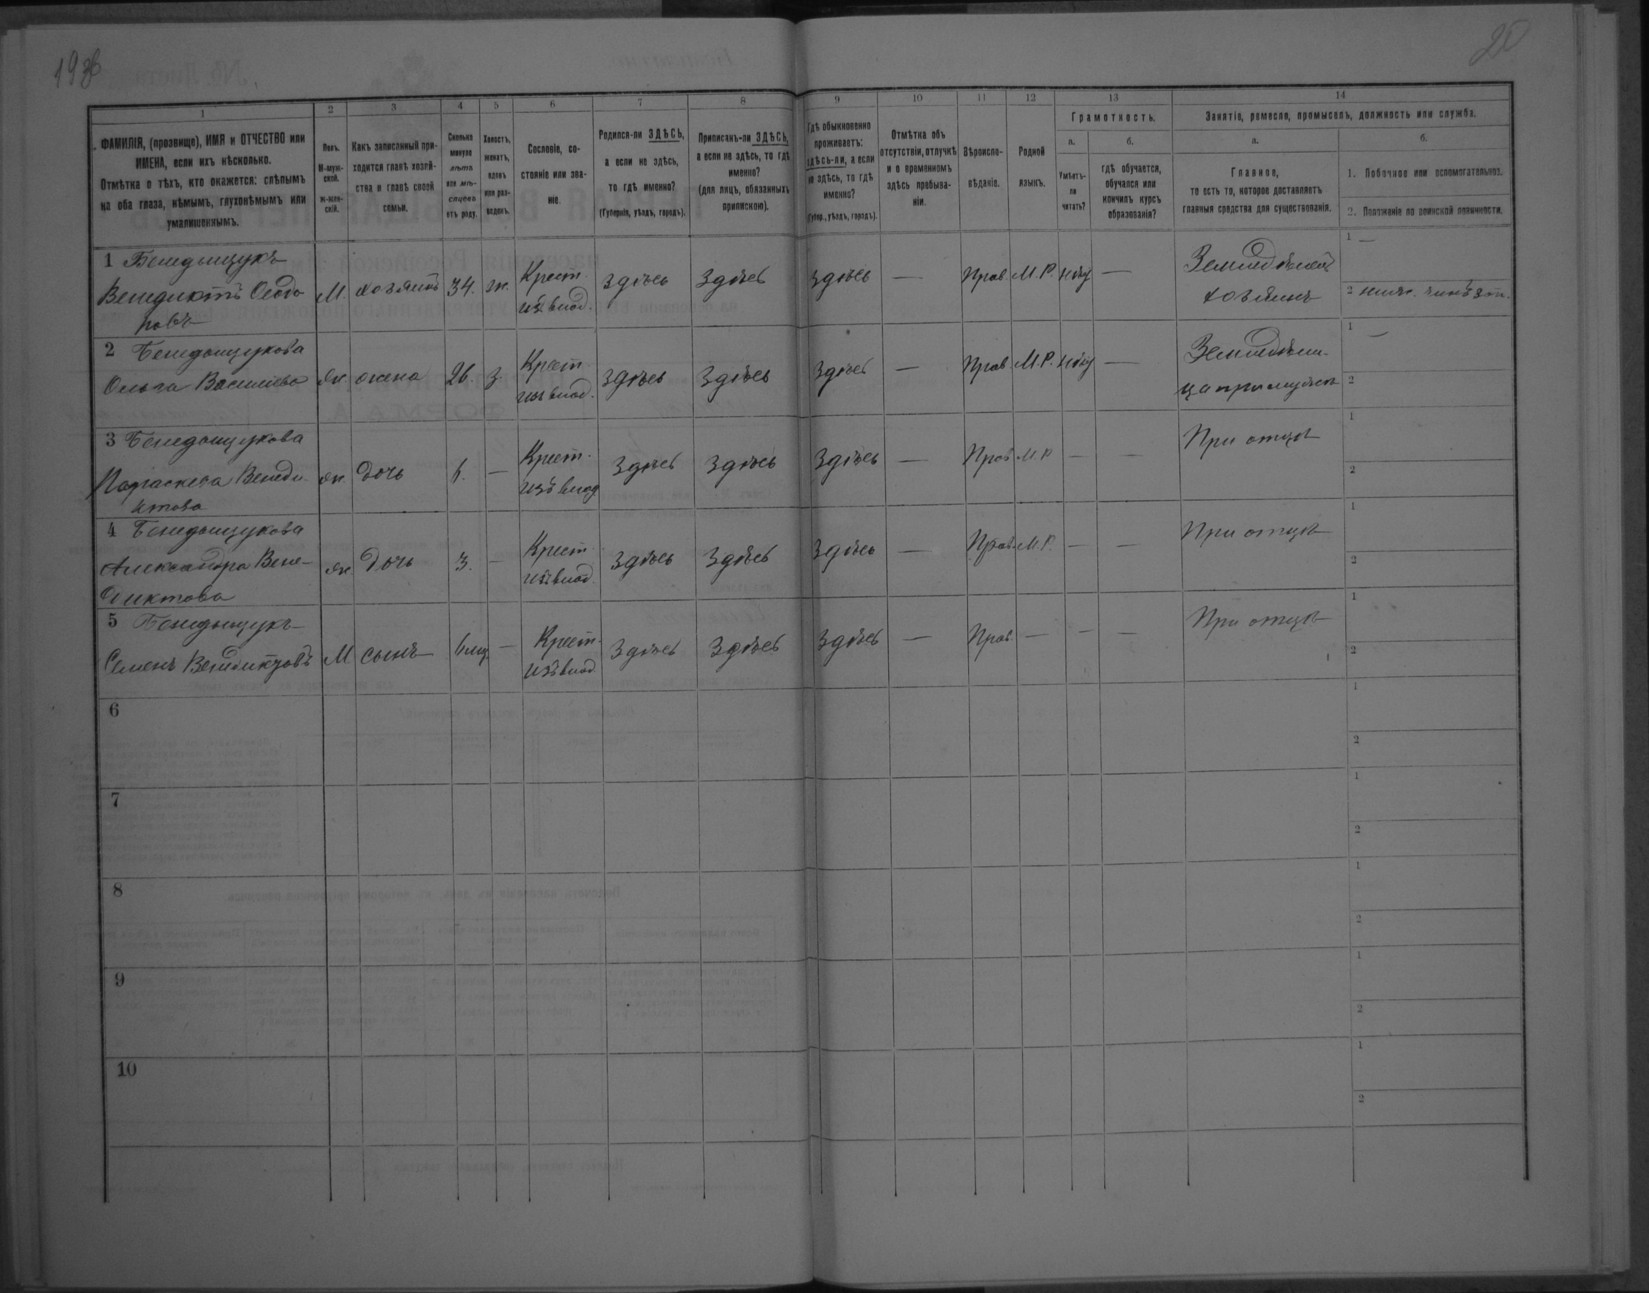 193
20
1
2
3
4
5
6
7
8
9
10
11
12
13
14
ФАМИЛІЯ, (прозвище), ИМЯ и ОТЧЕСТВО или
ИМЕНА, если ихъ нѣсколько.
Отмѣтка о тѣхъ, кто окажется: слѣпымъ
на оба глаза, нѣмымъ, глухонѣмымъ или
умалишеннымъ.
Полъ.
М-муж-
ской.
Ж-жен-
скій.
Какъ записанный при-
ходится главѣ хозяй-
ства и главѣ своей
семьи.
Сколько
минуло
лѣтъ
или мѣ-
сяцевъ
отъ роду.
Холостъ,
женатъ,
вдовъ
или раз-
веденъ.
Сословіе, со-
стояніе или зва-
ніе.
Родился-ли ЗДѢСЬ,
а если не здѣсь,
то гдѣ именно?
(Губернія, уѣздъ, городъ).
Приписанъ-ли ЗДѢСЬ,
а если не здѣсь, то гдѣ
именно?
(для лицъ, обязанныхъ
припискою).
Гдѣ обыкновенно
проживаетъ:
здѣсь-ли, а если
не здѣсь, то гдѣ
именно?
(Губер., уѣздъ, городъ).
Отмѣтка объ
отсутствіи, отлучкѣ
и о временномъ
здѣсь пребыва-
ніи.
Вѣроиспо-
вѣданіе.
Родной
языкъ.
Грамотность.
а.
Умѣетъ-
ли
читать?
б.
гдѣ обучается,
обучался или
кончилъ курсъ
образованія?
Занятіе, ремесло, промыселъ, должность или служба.
а.
Главное,
то есть то, которое доставляетъ
главныя средства для существованія.
б.
1. Побочное или вспомогательное.
2. Положеніе по воинской повинности.
1 Бенедыщукъ
Венедиктъ
М. хозяинъ 34. ж. Крест. здѣсь Здѣсь здѣсь — Прав М.Р. — 1 —
изъ влад.
хозяинъ
2
2 Бенедыщукова
Ольга Васильева
ж жена 26. з Крест. здѣсь Здѣсь здѣсь — Прав М.Р. — 1 —
изъ влад.
2
3 Бенедыщукова
Параскева Венеди-
ктова
ж. дочь 6. — Крест. Здѣсь Здѣсь Здѣсь — Прав М.Р. — — При отцѣ 1
изъ влад
2
4 Бенедыщукова
Александра Вене-
диктова
ж дочь 3. — Крест. Здѣсь Здѣсь Здѣсь — Прав. М.Р. — — При отцѣ 1
изъ влад.
2
5 Бенедыщукъ
Семенъ Венедиктовъ
М сынъ — Крест. Здѣсь Здѣсь Здѣсь — Прав. — — — При отцѣ 1
изъ влад.
2
6
1
2
7
1
2
8
1
2
9
1
2
10
1
2